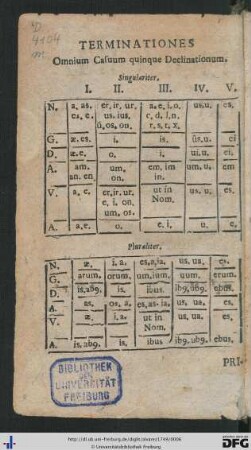 4104
m
TERMINATIONES
Omnium Casuum quinque Declinationum.
Singulariter.
I. II. III. IV. V.
N. a. as. er, ir, ur. a. e, i, o, us. u. es.
es, e. us. ius, c, d, l, n,
û, os, on. r, s, t, x.
G. æ. es. i. is. ûs. u. ei
D. æ. e. o. i. ui. u. ei.
A. am. um, em, im um. u. em
an. en on.
V. a. e. er, ir, ur. ut in us. u. es
e, i, on, Nom.
um, os.
A. a. e. o. e. i. u. e.
Pluraliter.
N. æ. i, a. es, a, ia. us, ua. es.
G. arum. orum. um, ium. uum. erum.
D. is, abꝰ. is. ibus. ibꝰ, ubꝰ. ebus.
A. as. os, a. es, as. ia. us, ua. es.
V. æ. i, a. ut in us, ua. es.
Nom.
A. is, abꝰ. is. ibus ibꝰ, ubꝰ. ebus.
PRI-
BIBLIOTHEK
DER
UNIVERSITÄT
FREIBURG
© Universitätsbibliothek Freiburg